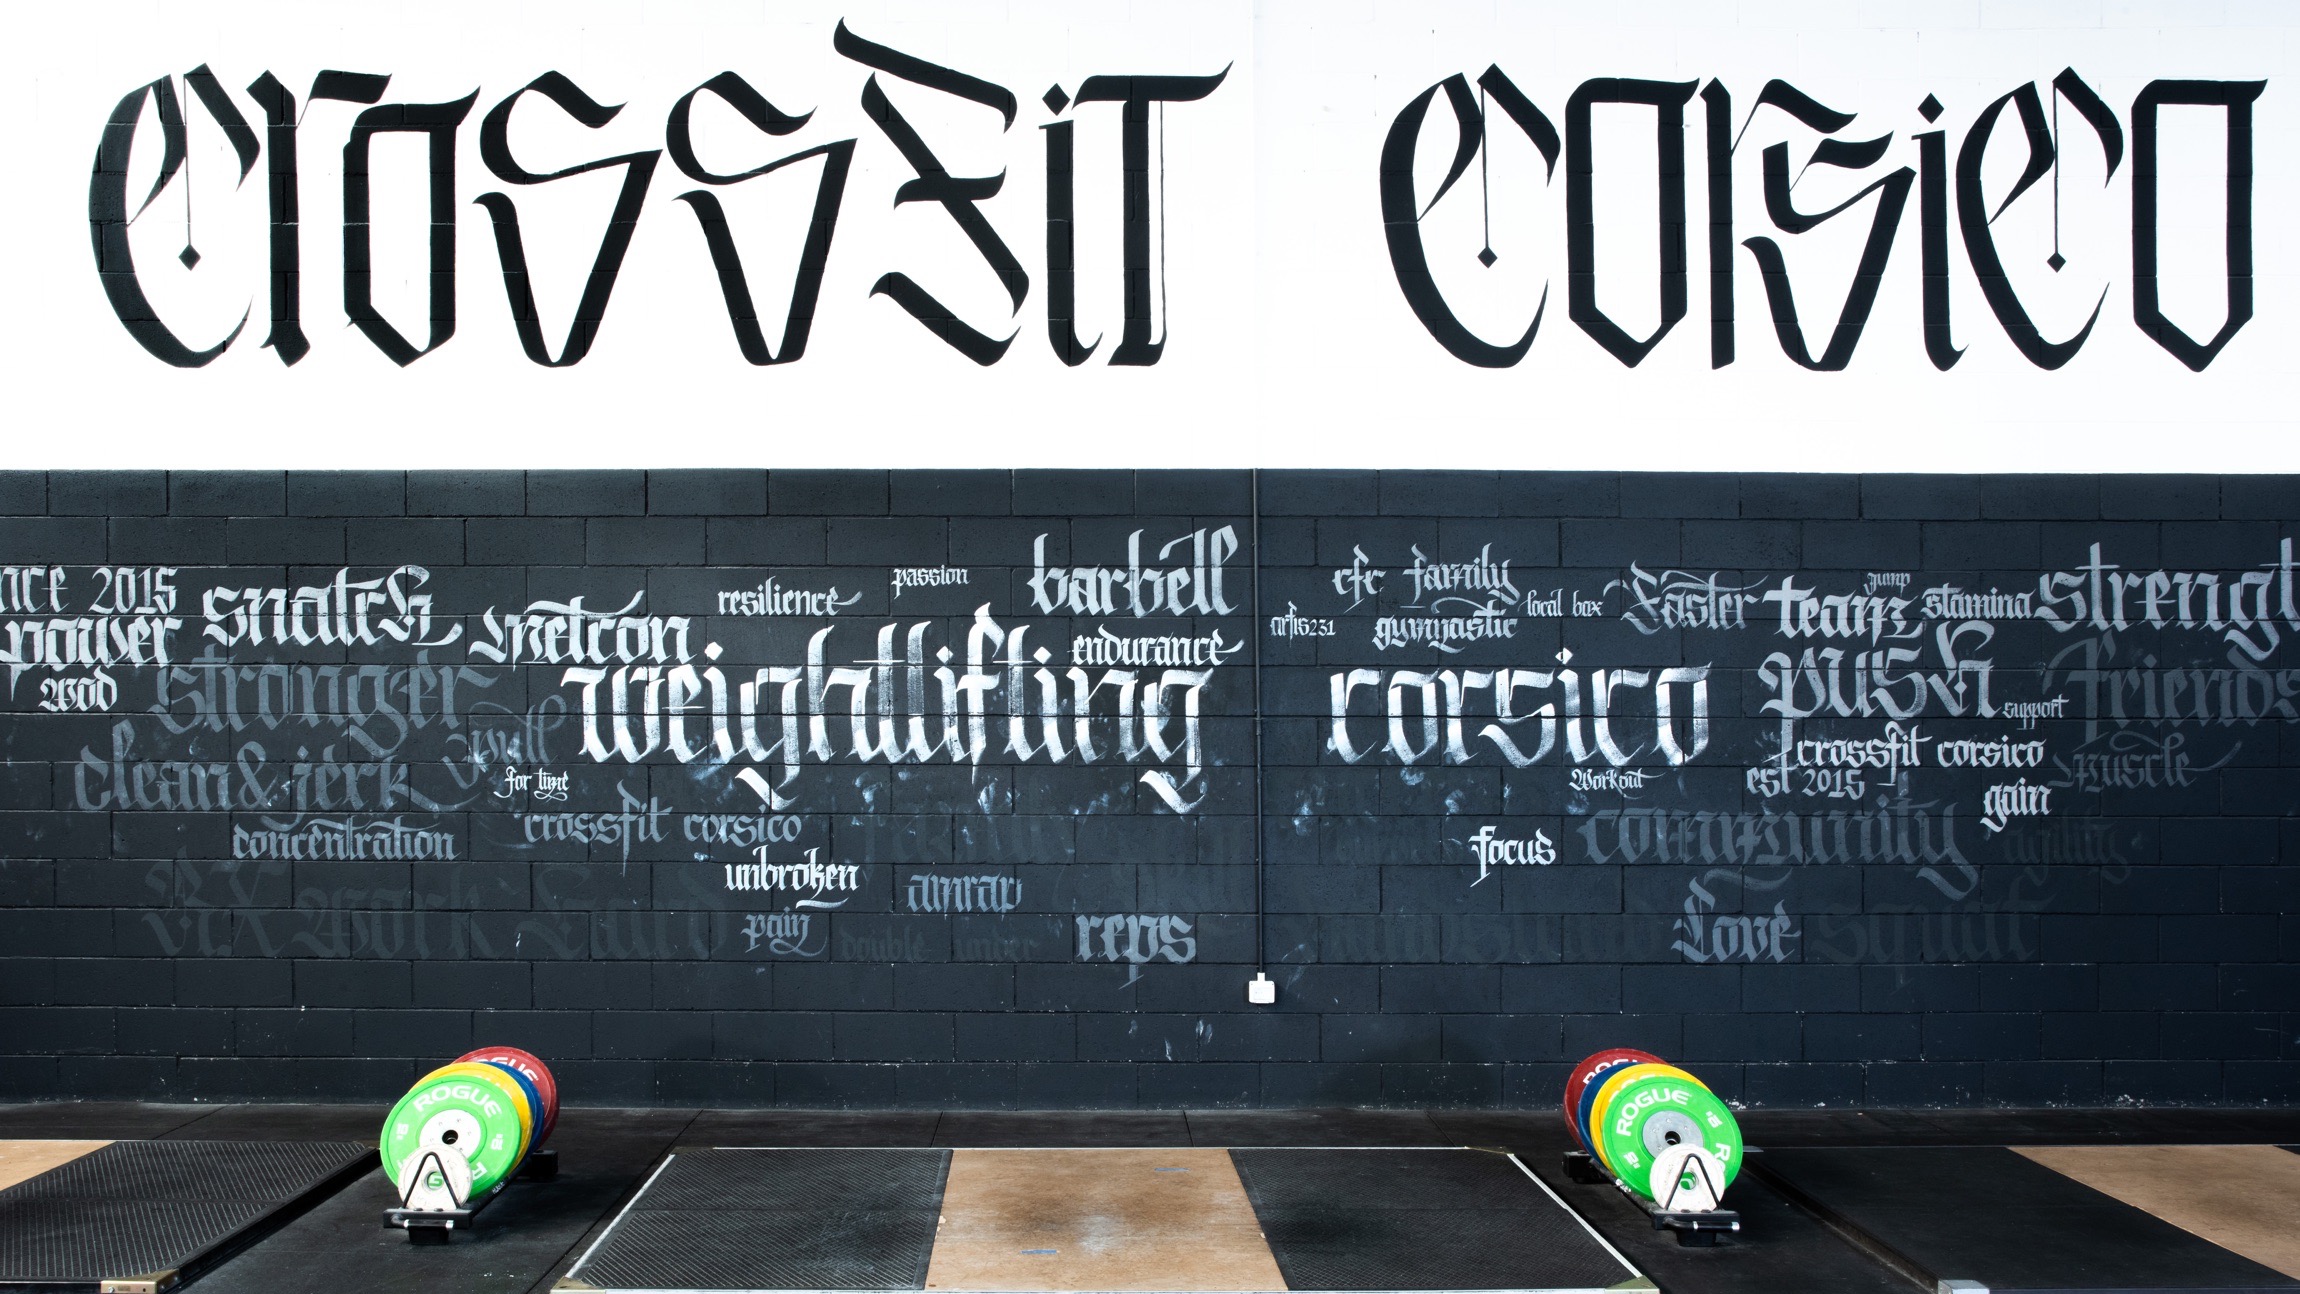 CrossFit Corsico
barbell
passion
resilience
snatch
2015
power
metcon
endurance
weightlifting
wod
stronger
pull
clean & jerk
for time
crossfit corsico
concentration
unbroken
amrap
Rx Work Hard
pain
double under
reps
cfc family
jump
local box
Faster
team
stamina
artis231
gymnastic
corsico
push
support
Friends
crossfit corsico
est 2015
Workout
muscle
gain
community
focus
agility
Love
squat
ROGUE
ROGUE
ROGUE
ROGUE